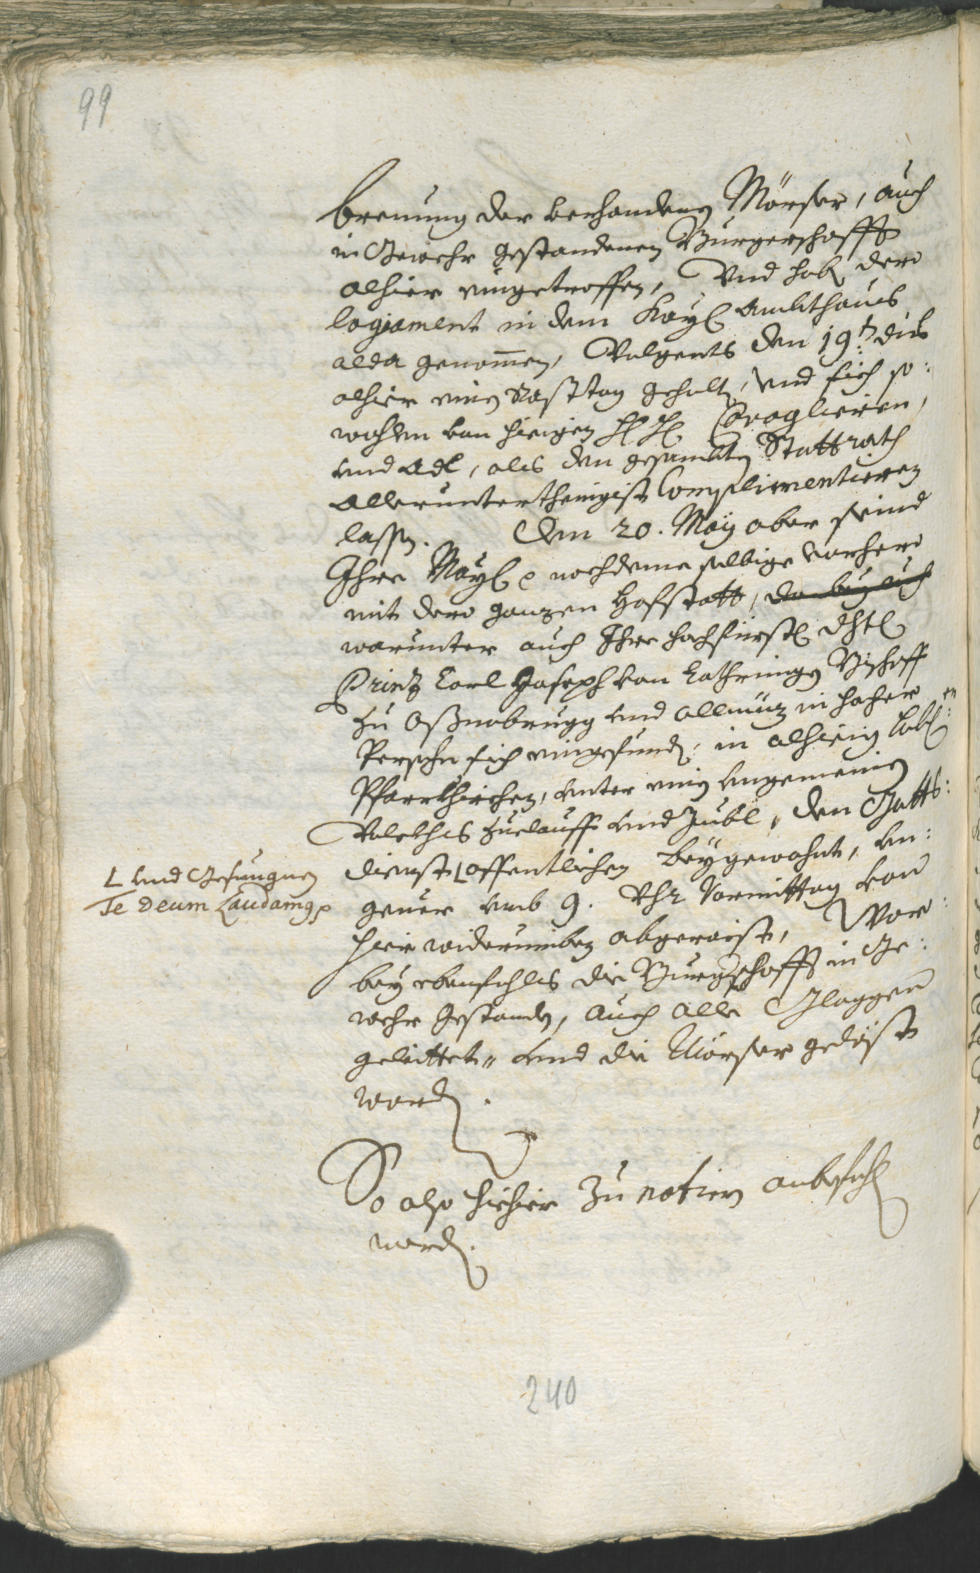 99
brenung der verhandenen Mörser, auch
in Gewehr gestandenen Burgerschafft
alhier eingetroffen, Vnd hab dero
logiament in dem Kayl Ambthaus
alda genommen, Volgents den 19t dis
alhier einen Rasttag gehalten, vnd sich so:
wohlen von hiesigen H H Cavaglieren,
vnd Adl, als den gesambten Stattrath
Allerunterthenigist Complimentieren
lassen. Den 20. May aber seind
Ihre Mayl nachdeme selbige vorhero
mit dero ganzen Hofstatt,
warunter auch Ihre hochfürstl dhtl
Prinz Carl Joseph von Lothringen Bischoff
zu Oßnabrugg vnd Ollmüz in hoher
Persohn sich eingefunden: in alhiesig Lobl en
Pfarrkhirchen, vnter einen vngemeinen
Volckhs zuelauff vnd Jubl, den Gotts:
dienst L offentlichen beygewohnt, vn:
L vnd Gesungnen
Te Deum Laudamus
geuer vmb 9. Vhr Vormittag von
hier widerumben abgeraist, Wor:
bey ebenfahls die Burgschafft in Ge:
wehr gestanden, auch alle Gloggen
geleittet, vnd die Mörser gelöst
worden.
So also hiehier zu notiren anbefohlen
worden.
240